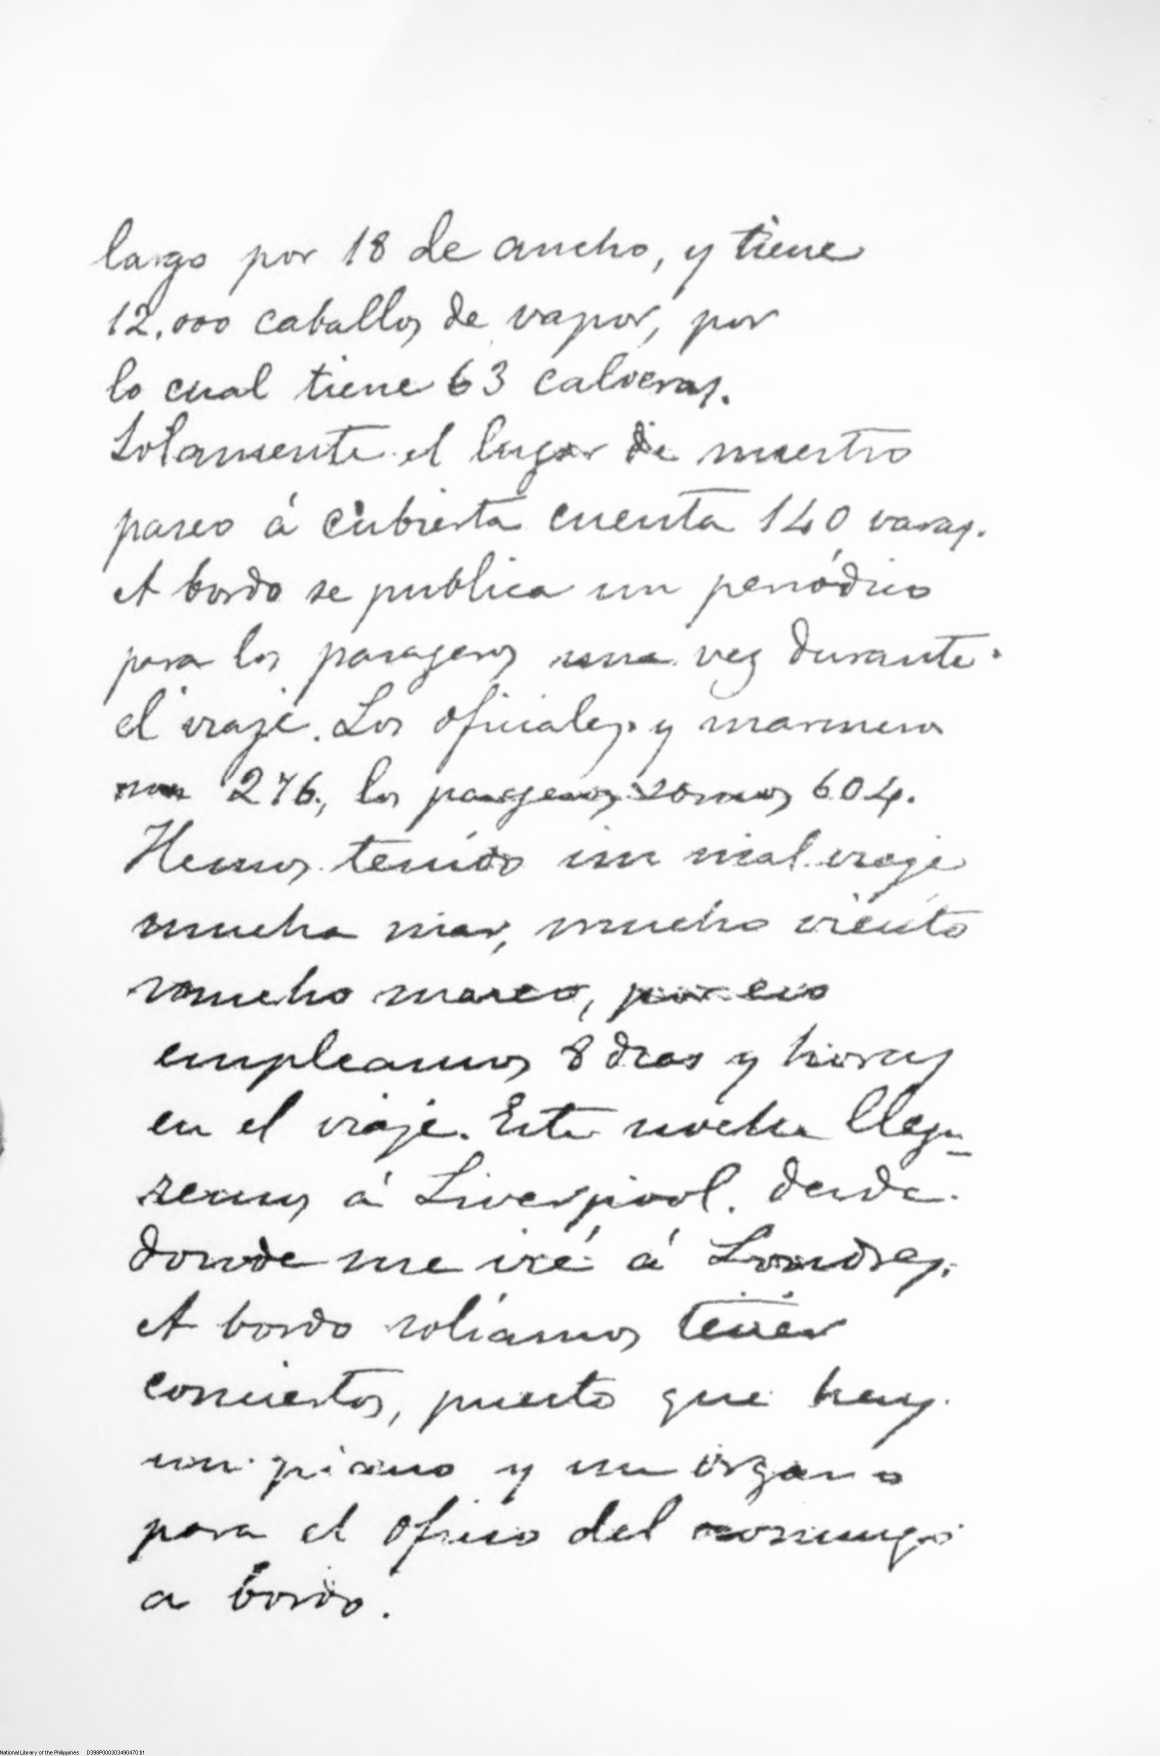 largo por 18 de ancho, y tiene
12.000 caballos de vapor, por
lo cual tiene 63 calderas.
Solamente el lugar de nuestro
paseo á cubierta cuenta 140 varas.
A bordo se publica un periódico
para los pasageros una vez durante
el viaje. Los oficiales y marineros
son 276, los pasageros somos 604.
Hemos tenido un mal viaje
mucha mar, mucho viento
mucho mareo, por eso
empleamos 8 dias y horas
en el viaje. Esta noche llega-
remos á Liverpool. desde
donde me iré á Londres.
A bordo solíamos tener
conciertos, puesto que hay
un piano y un órgano
para el oficio del domingo
a bordo.
National Library of the Philippines D398P00030349D470.tif